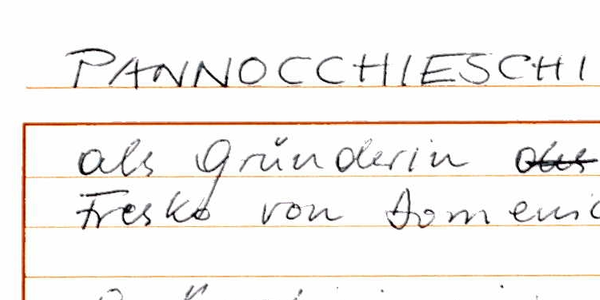 PANNOCCHIESCHI
als Gründerin
Fresko von Domenic